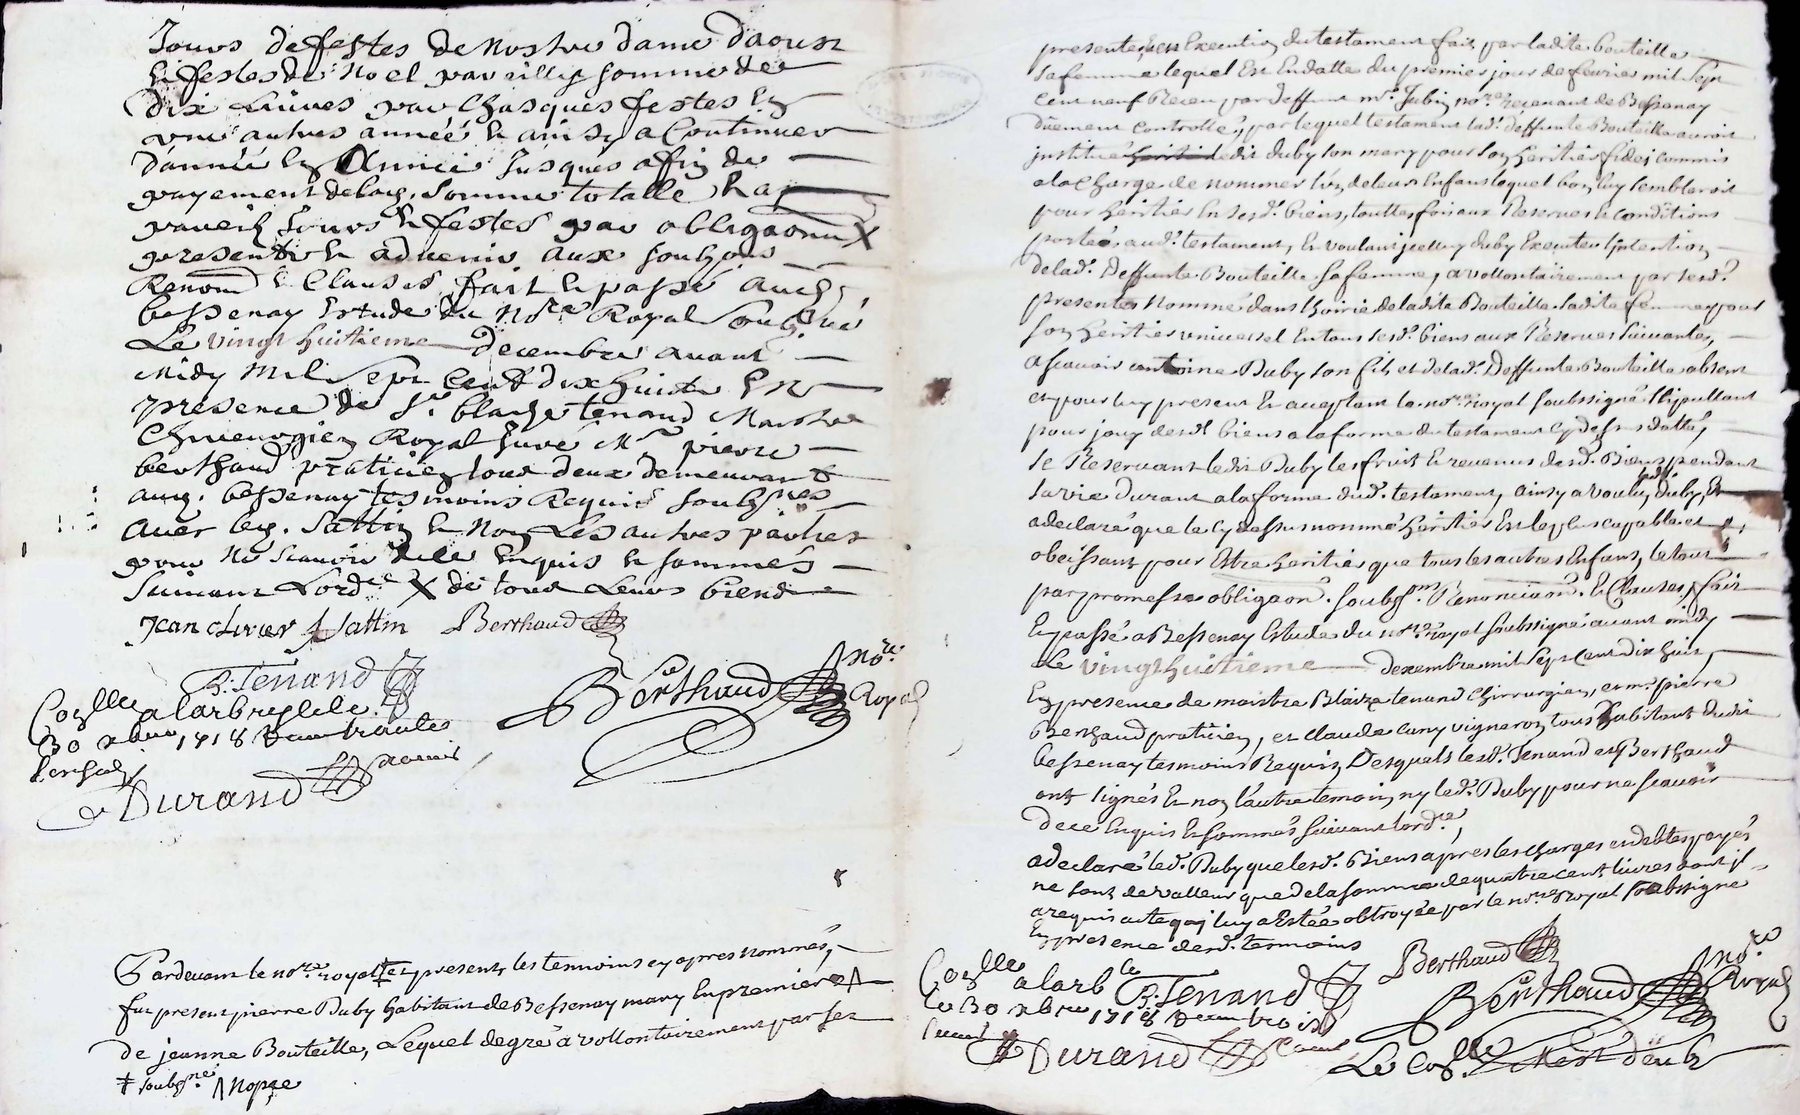 Jours defestes de nostre dame daoust
Et festes de Noel pareillie somme de
dix Livres par Chasques festes En
une autres année Et ainsy a Continuer
dannée En Année Jusques affin de
payement delad. Somme totalle
pareils Jours & festes par obligaon X
presente & advenir aux soubz
Renom & Clauses, fait Et passé aud.
bessenay Estude du Nore Royal Soubzné
Le vingt huitieme decembre avant
Midy Mil Sept Cent dix huit En
presence de Sr. blaize tenand Maistre
Chirurgien Royal Juré Mre pierre
berthaud praticien tous deux demeurant
aud. bessenay tesmoins Requis soubznes
avec led. Sattin Et Non Les autres parties
pour Ne scavoir de ce Enquis & sommés
Suivant Lordce X de tous Leurs biens
Jean clover Sattin Berthaud
B. Tenand
Berthaud Nore. Royal
Conlle alarbresle le
30 xbre 1718
Durand
Pardevant le nore royal ‡ Et presents les temoins cy apres nommés,
fut present pierre Duby habitant de Bessenay mary En premiere Λ
de jeanne Bouteille, Lequel degré a vollontairement par ses
‡ soubzné Λ Nopce
presentes, Et en Execution du testament fait par ladite bouteille
sa femme lequel Est En datte du premier jour de fevrier mil sept
cent neuf Receu par deffunt mr. Jubin nore. recevant de Bessenay
düement controllé, par lequel testament lad. deffunte Bouteille auroit
institué ledit duby son mary pour son heritier fidei commis
ala charge de nommer lun deleurs Enfans lequel bon luy sembleroit
pour heritier En sesd. biens, touttes fois aux Reserves & conditions
portées aud. testament, Et voulant jcelluy duby Executer lintention
delad. Deffunte Bouteille sa femme, a vollontairement par sesd.
presentes Nommé dans lhoirie deladite Bouteille sadite femme pour
son heritier universel En tous sesd. biens aux Reserves suivantes,
ascavoir antoine Duby son fils et delad. Deffunte Bouteille absent
et pour luy present Et acceptant le nore royal soubssigné stipullant
pour jouir desd. biens ala forme du testament cy dessus datté,
se Reservant ledit Duby les fruit & revenus desd. Biens pendant
sa vie durant ala forme dud. testament, ainsy a voulu ledit duby, Et
a declaré que le cy dessus nommé heritier Est le plus capable et
obeissant pour Estre heritier que tous les autres Enfans, le tout
par promesses obligaon. soubzmon. Renonciaon. Et Clauses, fait
Et passé a Bessenay Estude du nore royal soubssigné avant midy
Le vingt huitieme dexembre mil sept cent dix huit,
En presence de maistre Blaize tenand chirurgien, et mr. pierre
Berthaud praticien, et claude cuny vigneron tous habitants dudit
bessenay tesmoins Requis, Desquels lesd. Tenand et Berthaud
ont signés Et non lautre temoin, ny led. Duby pour ne scavoir
dece Enquis Et sommés suivant lordce,
a declaré led. Duby que lesd. Biens apres les charges et debtes payés
ne sont de valleur que dela somme de quatre cent livres dont il
a requis acte quoy luy a Estée obtroyée par le nore royal soubssigné
En presence desd. tesmoins
Berthaud
B. Tenand
Berthaud Nore Royal
Conlle alarble
le 30 xbre 1718
Durand